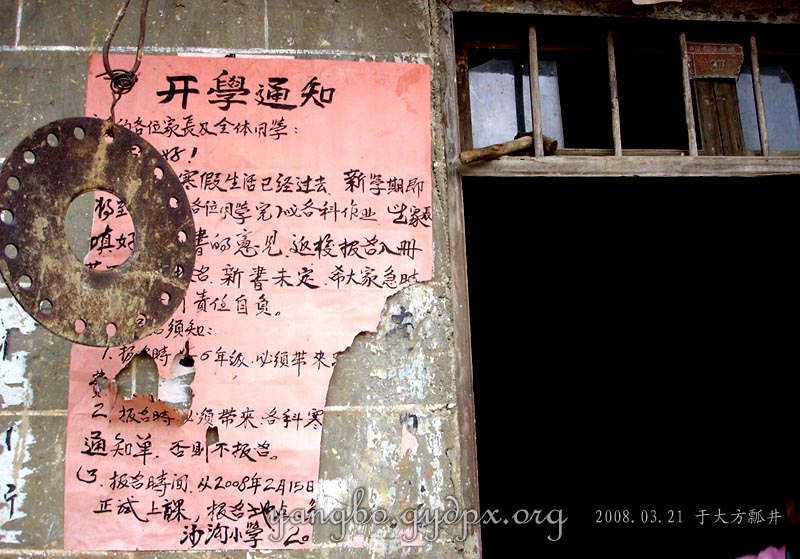 开学通知
的各位家長及全体同学:
好!
寒假生活已经过去,新学期即
各位同学完成各科作业,让家長
填好 書的意见,返校报名入册
名,新書未定,希大家急时
责任自负。
须知:
1.报名時 6年级必须带来
费
2.报名時必须带来各科寒
通知单,否则不报名。
(3.报名時间,从2008年2月15日
正式上課,报名地点
沙沟小学 20
yangbo.gydpx.org
2008.03.21 于大方瓢井